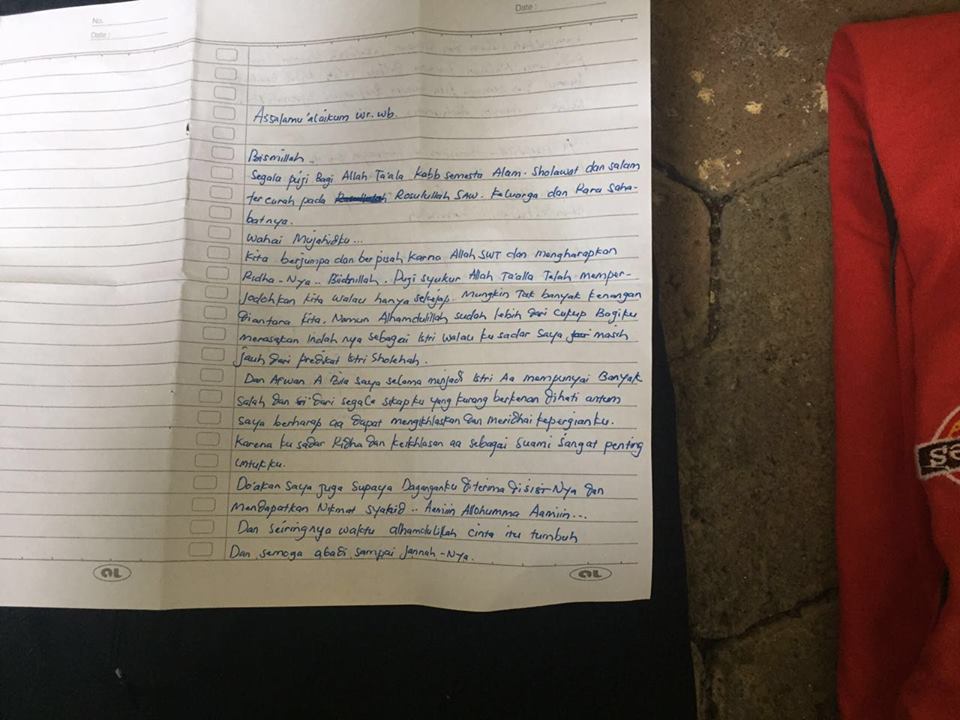 No.
Date :
Date :
Assalamu 'alaikum wr. wb.
Bismillah.
Segala puji Bagi Allah Ta'ala Rabb semesta Alam. Sholawat dan salam
tercurah pada Rosulullah SAW. Keluarga dan Para Saha-
batnya.
Wahai Mujahidku...
Kita berjumpa dan berpisah Karna Allah SWT dan mengharapkan
Ridha-Nya.. Biidznillah. Puji syukur Allah Ta'alla Telah memper-
jodohkan Kita walau hanya sekejap. Mungkin Tak banyak kenangan
diantara Kita. Namun Alhamdulillah sudah lebih dari Cukup Bagiku
merasakan Indah nya sebagai Istri walau ku sadar saya masih
jauh dari predikat Istri Sholehah.
Dan Afwan A Bila saya selama menjadi Istri Aa mempunyai Banyak
salah dan dari segala sikapku yang kurang berkenan dihati antum
saya berharap aa dapat mengikhlaskan dan meridhai kepergianku.
Karena ku sadar Ridha dan keikhlasan aa sebagai suami sangat penting
untukku.
Do'akan saya juga supaya Daganganku diterima disisi Nya dan
mendapatkan Nikmat syahid.. Aamiin Allohumma Aamiin...
Dan seiringnya waktu alhamdulillah cinta itu tumbuh
Dan semoga abadi sampai Jannah-Nya.
OL
OL